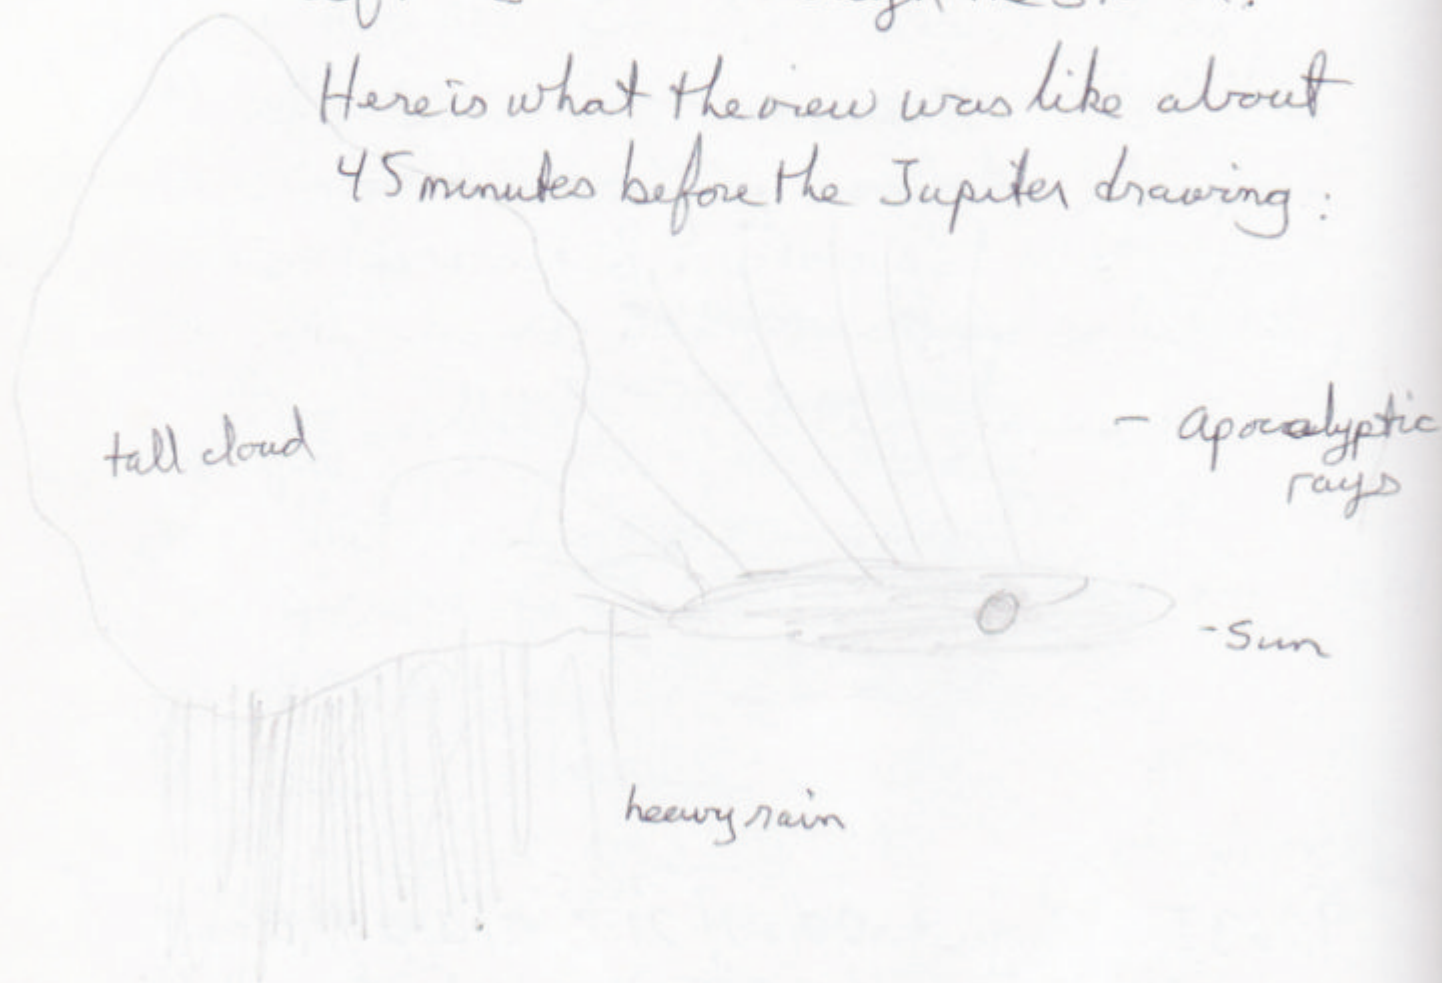 Here is what the view was like about
45 minutes before the Jupiter drawing :
tall cloud
- Apocalyptic
rays
- Sun
heavy rain